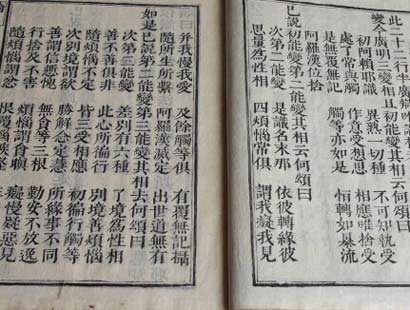 此二十一行半廣辨唯
變今廣明三變相且初能變其相云何頌曰
初阿賴耶識 異熟一切種 不可知執受
處了常與觸 作意受想思 相應唯捨受
是無覆無記 觸等亦如是 恒轉如暴流
阿羅漢位捨
已說初能變第二能變其相云何頌曰
次第二能變 是識名末那 依彼轉緣彼
思量為性相 四煩惱常俱 謂我癡我見
并我慢我愛 及餘觸等俱 有覆無記攝
隨所生所繫 阿羅漢滅定 出世道無有
如是已說第二能變第三能變其相云何頌曰
次第三能變 差別有六種 了境為性相
善不善俱非 此心所徧行 別境善煩惱
隨煩惱不定 皆三受相應 初徧行觸等
次別境謂欲 勝解念定慧 所緣事不同
善謂信慚愧 無貪等三根 勤安不放逸
行捨及不害 煩惱謂貪瞋 癡慢疑惡見
隨煩惱謂忿 恨覆惱嫉慳